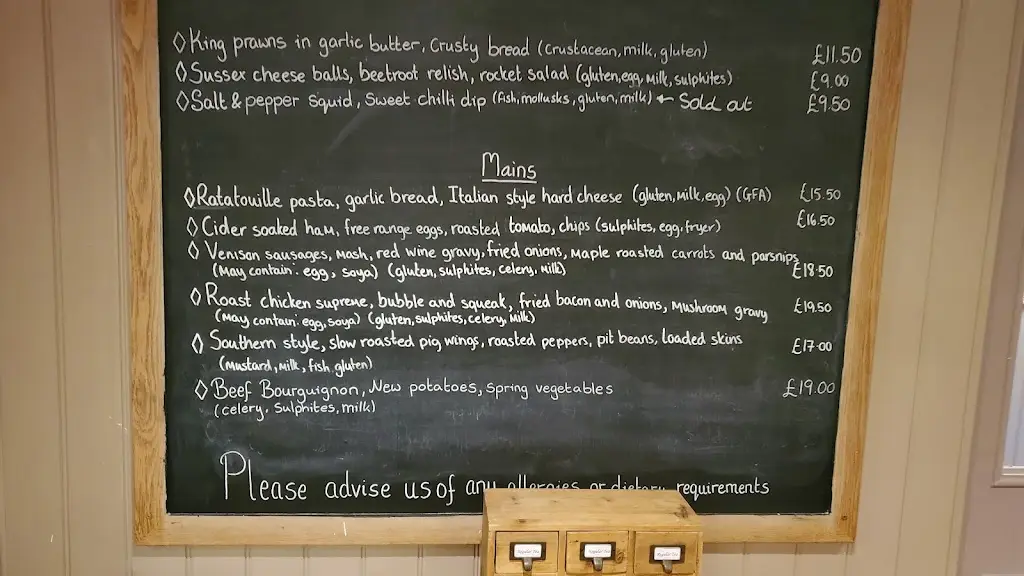 ◊King prawns in garlic butter, Crusty bread (crustacean, milk, gluten) £11.50
◊Sussex cheese balls, beetroot relish, rocket salad (gluten, egg, milk, sulphites) £9.00
◊Salt & pepper squid, Sweet chilli dip (fish, mollusks, gluten, milk) ← Sold out £9.50
Mains
◊Ratatouille pasta, garlic bread, Italian style hard cheese (gluten, Milk, egg) (GFA) £15.50
◊Cider soaked ham, free range eggs, roasted tomato, chips (sulphites, egg, fryer) £16.50
◊Venison sausages, mash, red wine gravy, fried onions, Maple roasted carrots and parsnips
(May contain: egg, soya) (gluten, sulphites, celery, Milk) £18.50
◊Roast chicken supreme, bubble and squeak, fried bacon and onions, Mushroom gravy £19.50
(May contain: egg, soya) (gluten, sulphites, celery, Milk)
◊Southern style, slow roasted pig wings, roasted peppers, pit beans, loaded skins £17.00
(Mustard, Milk, fish, gluten)
◊Beef Bourguignon, New potatoes, Spring vegetables £19.00
(celery, sulphites, milk)
Please advise us of any allergies or dietary requirements